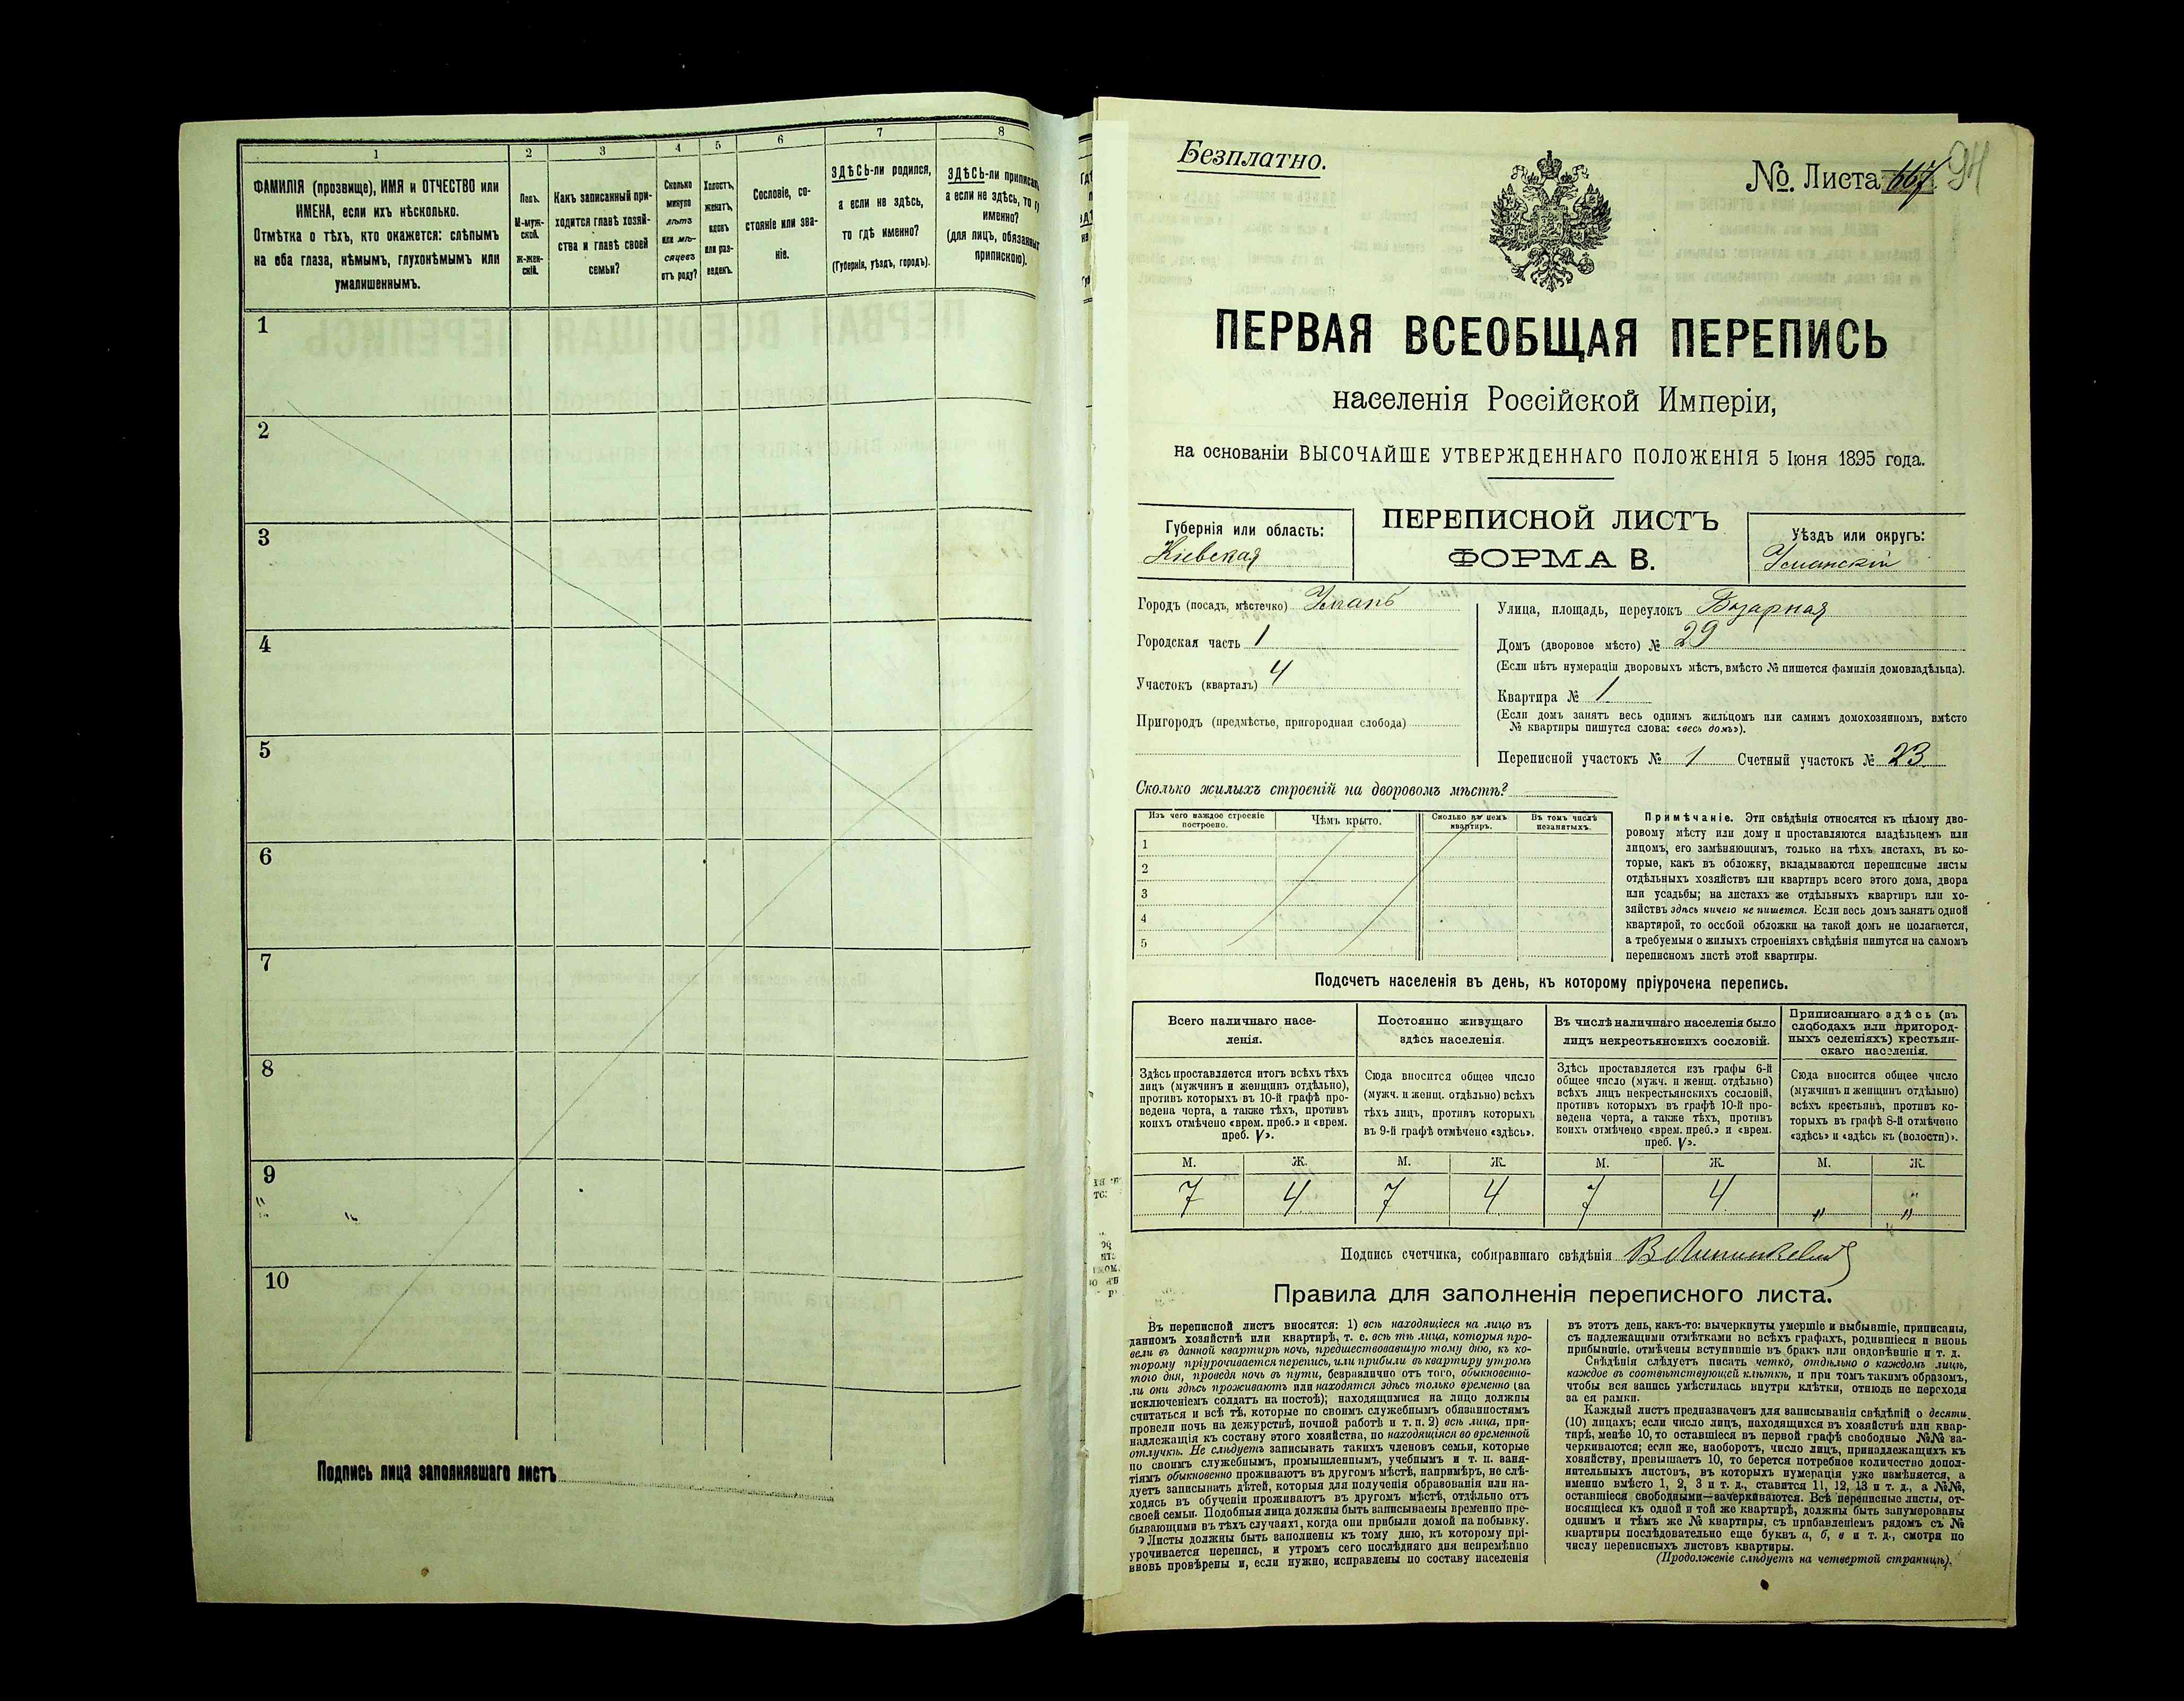 1
2
3
4
5
6
7
8
ФАМИЛІЯ (прозвище), ИМЯ и ОТЧЕСТВО или
ИМЕНА, если ихъ нѣсколько.
Отмѣтка о тѣхъ, кто окажется: слѣпымъ
на оба глаза, нѣмымъ, глухонѣмымъ или
умалишеннымъ.
Полъ.
М-муж-
ской.
ж-жен-
скій.
Какъ записанный при-
ходится главѣ хозяй-
ства и главѣ своей
семьи?
Сколько
минуло
лѣтъ
или мѣ-
сяцевъ
отъ роду?
Холостъ,
женатъ,
вдовъ
или раз-
веденъ.
Сословіе, со-
стояніе или зва-
ніе.
ЗДѢСЬ-ли родился,
а если не здѣсь,
то гдѣ именно?
(Губернія, уѣздъ, городъ).
ЗДѢСЬ-ли приписанъ,
а если не здѣсь, то гдѣ
именно?
(для лицъ, обязанныхъ
припискою).
1
2
3
4
5
6
7
8
9
10
Подпись лица заполнявшаго листъ
Безплатно.
№. Листа 667. 94
ПЕРВАЯ ВСЕОБЩАЯ ПЕРЕПИСЬ
населенія Россійской Имперіи,
на основаніи ВЫСОЧАЙШЕ УТВЕРЖДЕННАГО ПОЛОЖЕНІЯ 5 Іюня 1895 года.
Губернія или область:
Кіевская
ПЕРЕПИСНОЙ ЛИСТЪ
ФОРМА В.
Уѣздъ или округъ:
Уманскій
Городъ (посадъ, мѣстечко) Умань
Городская часть 1
Участокъ (кварталъ) 4
Пригородъ (предмѣстье, пригородная слобода)
Улица, площадь, переулокъ Базарная
Домъ (дворовое мѣсто) № 29
(Если нѣтъ нумераціи дворовыхъ мѣстъ, вмѣсто № пишется фамилія домовладѣльца).
Квартира № 1
(Если домъ занятъ весь однимъ жильцомъ или самимъ домохозяиномъ, вмѣсто
№ квартиры пишутся слова: «весь домъ»).
Переписной участокъ № 1 Счетный участокъ № 23
Сколько жилыхъ строеній на дворовомъ мѣстѣ?
Изъ чего каждое строеніе
построено.
Чѣмъ крыто.
Сколько въ немъ
квартиръ.
Въ томъ числѣ
незанятыхъ.
1
2
3
4
5
Примѣчаніе. Эти свѣдѣнія относятся къ цѣлому дво-
ровому мѣсту или дому и проставляются владѣльцемъ или
лицомъ, его замѣняющимъ, только на тѣхъ листахъ, въ ко-
торые, какъ въ обложку, вкладываются переписные листы
отдѣльныхъ хозяйствъ или квартиръ всего этого дома, двора
или усадьбы; на листахъ же отдѣльныхъ квартиръ или хо-
зяйствъ здѣсь ничего не пишется. Если весь домъ занятъ одной
квартирой, то особой обложки на такой домъ не полагается,
а требуемыя о жилыхъ строеніяхъ свѣдѣнія пишутся на самомъ
переписномъ листѣ этой квартиры.
Подсчетъ населенія въ день, къ которому пріурочена перепись.
Всего наличнаго насе-
ленія.
Здѣсь проставляется итогъ всѣхъ тѣхъ
лицъ (мужчинъ и женщинъ отдѣльно),
противъ которыхъ въ 10-й графѣ про-
ведена черта, а также тѣхъ, противъ
коихъ отмѣчено «врем. преб.» и «врем.
преб. V».
Постоянно живущаго
здѣсь населенія.
Сюда вносится общее число
(мужч. и женщ. отдѣльно) всѣхъ
тѣхъ лицъ, противъ которыхъ
въ 9-й графѣ отмѣчено «здѣсь».
Въ числѣ наличнаго населенія было
лицъ некрестьянскихъ сословій.
Здѣсь проставляется изъ графы 6-й
общее число (мужч. и женщ. отдѣльно)
всѣхъ лицъ некрестьянскихъ сословій,
противъ которыхъ въ графѣ 10-й про-
ведена черта, а также тѣхъ, противъ
коихъ отмѣчено «врем. преб.» и «врем.
преб. V».
Приписаннаго здѣсь (въ
слободахъ или пригород-
ныхъ селеніяхъ) крестьян-
скаго населенія.
Сюда вносится общее число
(мужчинъ и женщинъ отдѣльно)
всѣхъ крестьянъ, противъ ко-
торыхъ въ графѣ 8-й отмѣчено
«здѣсь» и «здѣсь къ (волости)».
М. Ж. М. Ж. М. Ж. М. Ж.
7 4 7 4 7 4 " "
Подпись счетчика, собиравшаго свѣдѣнія
Правила для заполненія переписного листа.
Въ переписной листъ вносятся: 1) всѣ находящіеся на лицо въ
данномъ хозяйствѣ или квартирѣ, т. е. всѣ тѣ лица, которыя про-
вели въ данной квартирѣ ночь, предшествовавшую тому дню, къ ко-
торому пріурочивается перепись, или прибыли въ квартиру утромъ
того дня, проведя ночь въ пути, безразлично отъ того, обыкновенно-
ли они здѣсь проживаютъ или находятся здѣсь только временно (за
исключеніемъ солдатъ на постоѣ); находящимися на лицо должны
считаться и всѣ тѣ, которые по своимъ служебнымъ обязанностямъ
провели ночь на дежурствѣ, ночной работѣ и т. п. 2) всѣ лица, при-
надлежащія къ составу этого хозяйства, но находящіяся во временной
отлучкѣ. Не слѣдуетъ записывать такихъ членовъ семьи, которые
по своимъ служебнымъ, промышленнымъ, учебнымъ и т. п. заня-
тіямъ обыкновенно проживаютъ въ другомъ мѣстѣ, напримѣръ, не слѣ-
дуетъ записывать дѣтей, которыя для полученія образованія или на-
ходясь въ обученіи проживаютъ въ другомъ мѣстѣ, отдѣльно отъ
своей семьи. Подобныя лица должны быть записываемы временно пре-
бывающими въ тѣхъ случаяхъ, когда они прибыли домой на побывку.
Листы должны быть заполнены къ тому дню, къ которому прі-
урочивается перепись, и утромъ сего послѣдняго дня непремѣнно
вновь провѣрены и, если нужно, исправлены по составу населенія
въ этотъ день, какъ-то: вычеркнуты умершіе и выбывшіе, приписаны,
съ надлежащими отмѣтками во всѣхъ графахъ, родившіеся и вновь
прибывшіе, отмѣчены вступившіе въ бракъ или овдовѣвшіе и т. д.
Свѣдѣнія слѣдуетъ писать четко, отдѣльно о каждомъ лицѣ,
каждое въ соотвѣтствующей клѣткѣ, и при томъ такимъ образомъ,
чтобы вся запись умѣстилась внутри клѣтки, отнюдь не переходя
за ея рамки.
Каждый листъ предназначенъ для записыванія свѣдѣній о десяти
(10) лицахъ; если число лицъ, находящихся въ хозяйствѣ или квар-
тирѣ, менѣе 10, то оставшіеся въ первой графѣ свободные №№ за-
черкиваются; если же, наоборотъ, число лицъ, принадлежащихъ къ
хозяйству, превышаетъ 10, то берется потребное количество допол-
нительныхъ листовъ, въ которыхъ нумерація уже измѣняется, а
именно вмѣсто 1, 2, 3 и т. д., ставится 11, 12, 13 и т. д., а №№,
оставшіеся свободными—зачеркиваются. Всѣ переписные листы, от-
носящіеся къ одной и той же квартирѣ, должны быть занумерованы
однимъ и тѣмъ же № квартиры, съ прибавленіемъ рядомъ съ №
квартиры послѣдовательно еще буквъ а, б, в и т. д., смотря по
числу переписныхъ листовъ квартиры.
(Продолженіе слѣдуетъ на четвертой страницѣ).